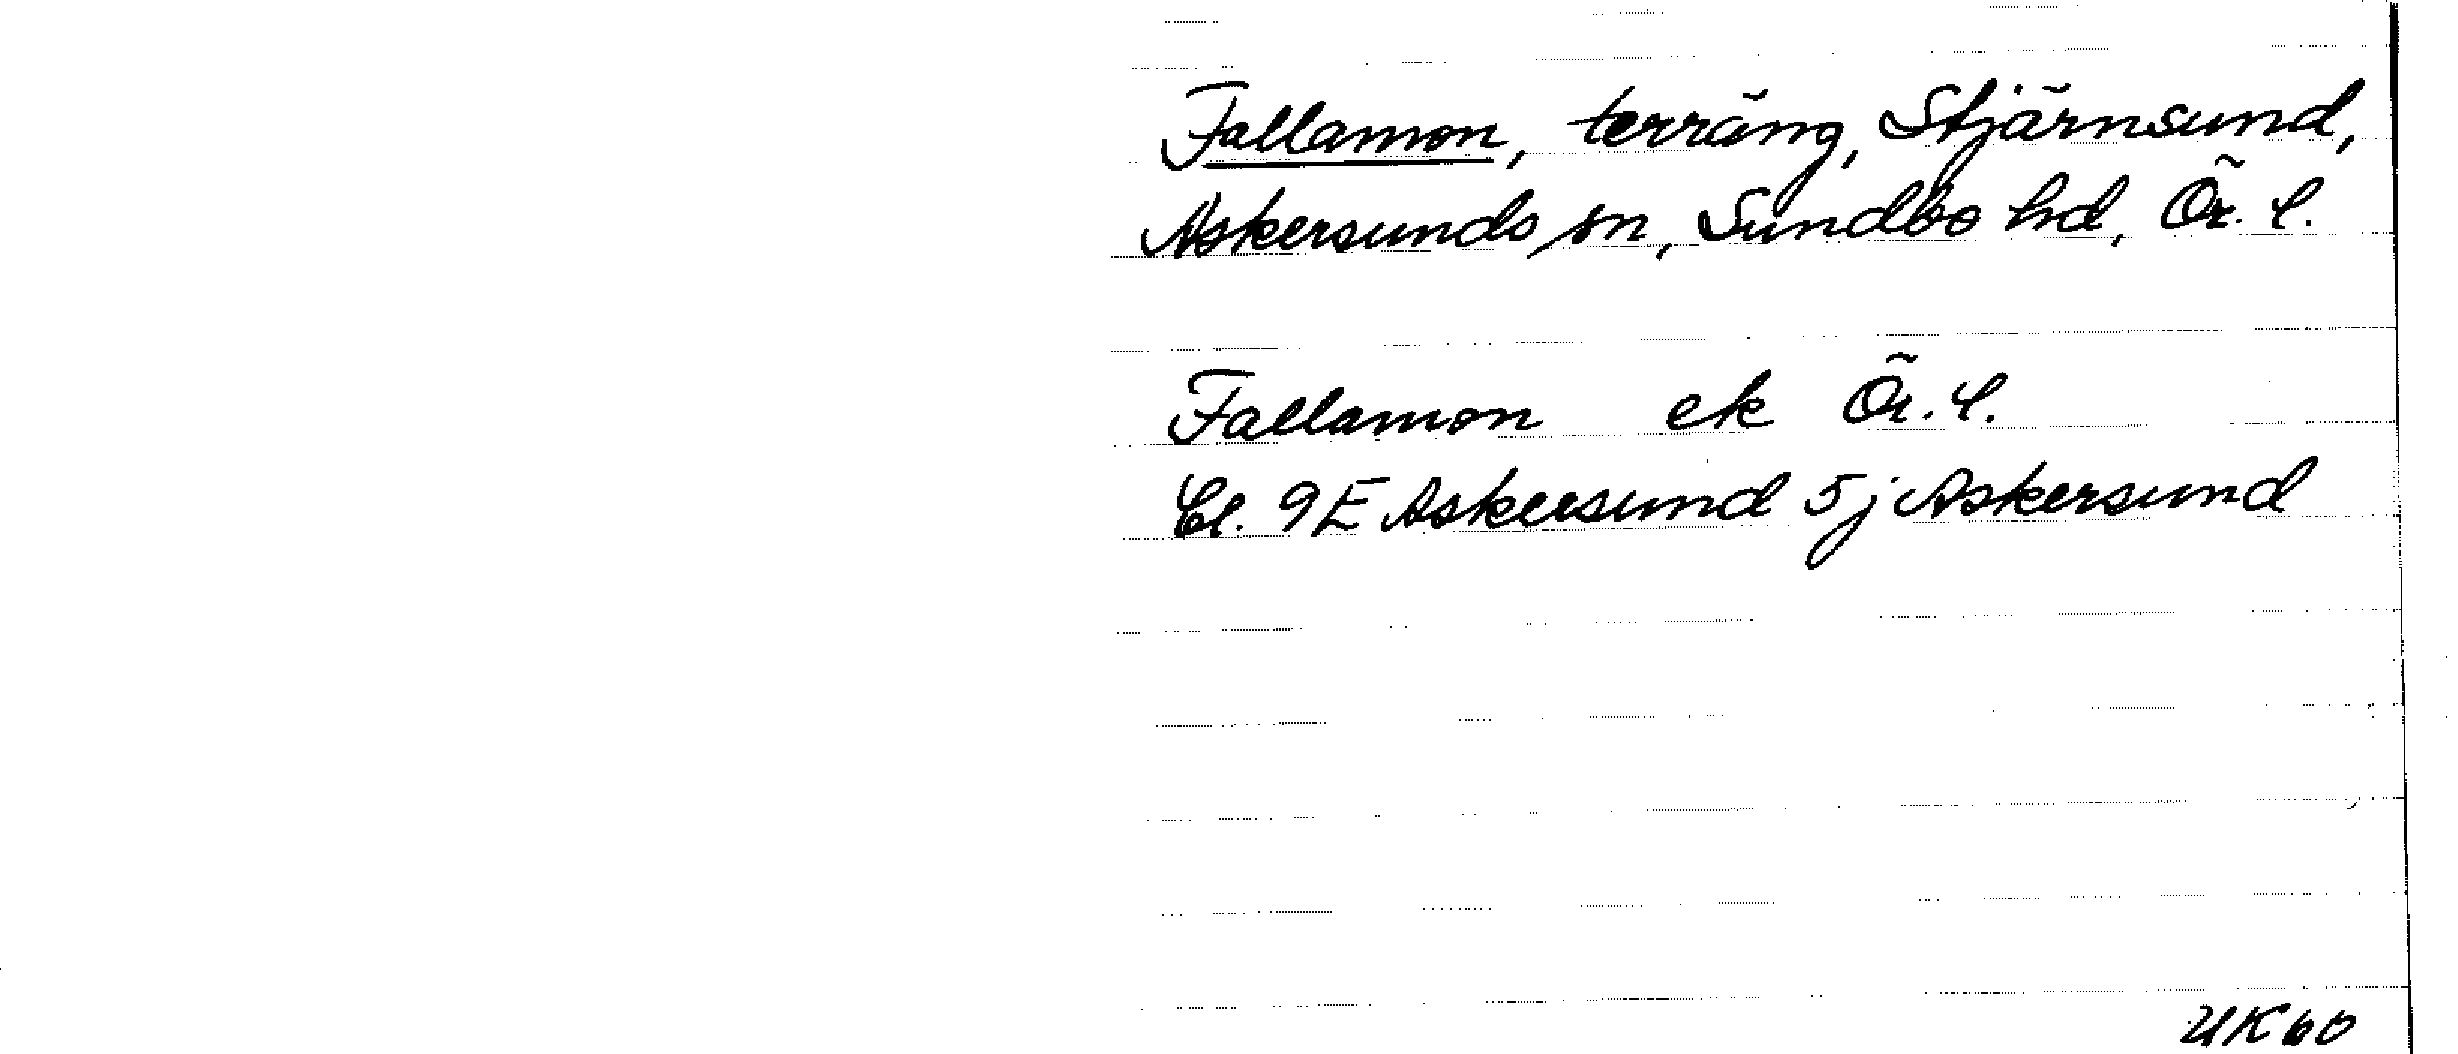 Fallamon, terräng, Stjärnsund,
Askersunds sn, Sundbo hd, Ör. l.
Fallamon ek Ör. l.
Bl. 9E Askersund 5j Askersund
UK60